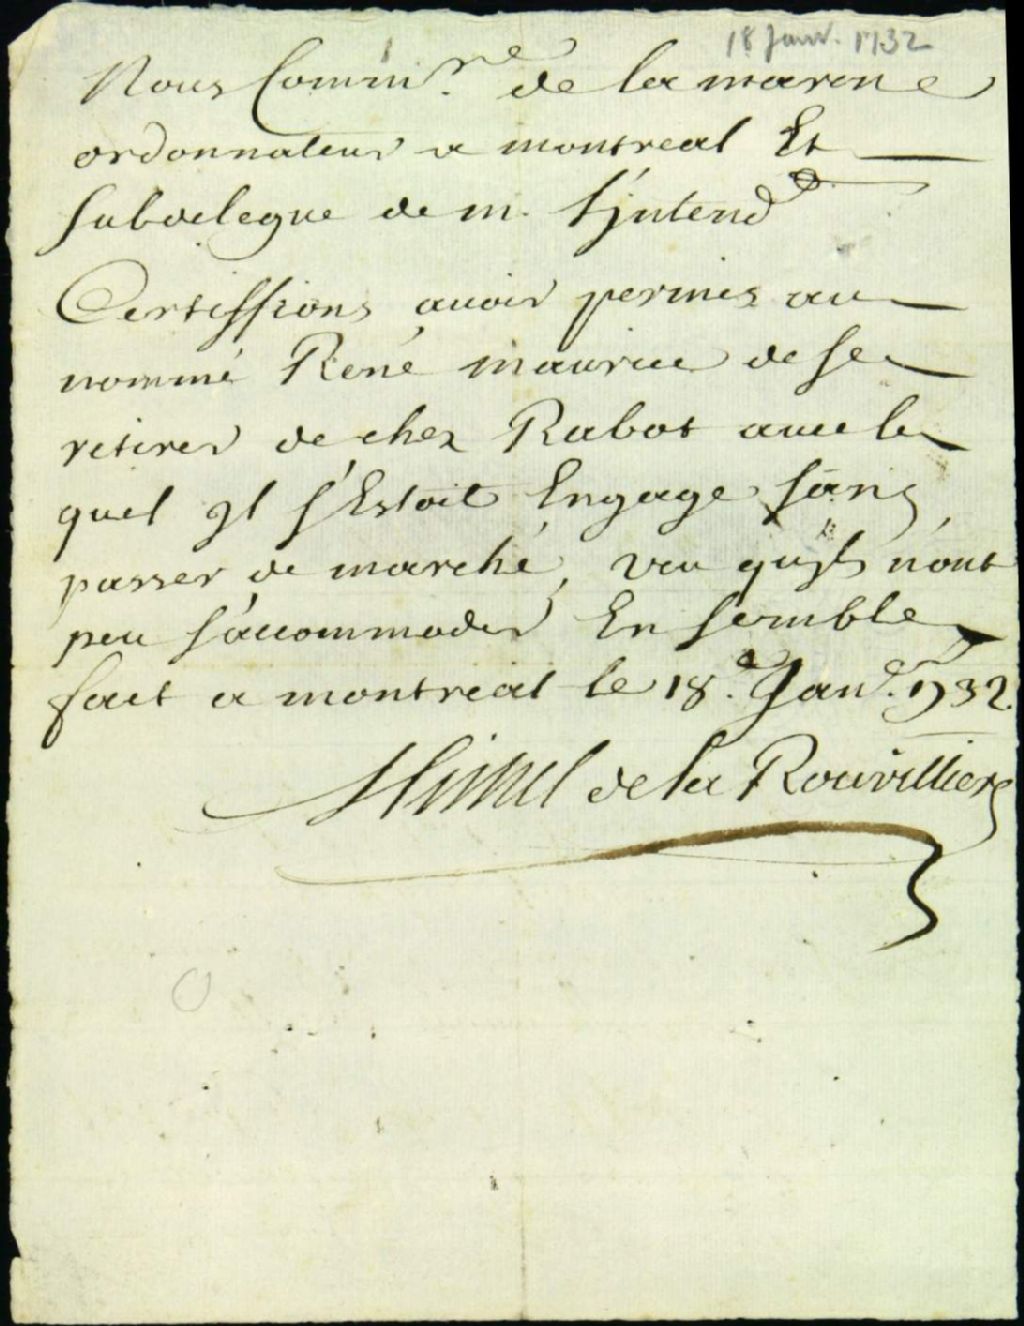 18 Janv. 1732
Nous Commre. de la marine
ordonnateur a montreal Et
subdelegue de m. L'jntendt
Certiffions, avoir permis au
nommé René maurice de se
retirer de chez Rabot avec le
quel jl s'Estoit Engage sans
passer de marché, veu qu'jls n'ont
peu s'accommoder En semble
fait a montreal le 18.e Janv.er 1732.
Michel de la Rouvilliere